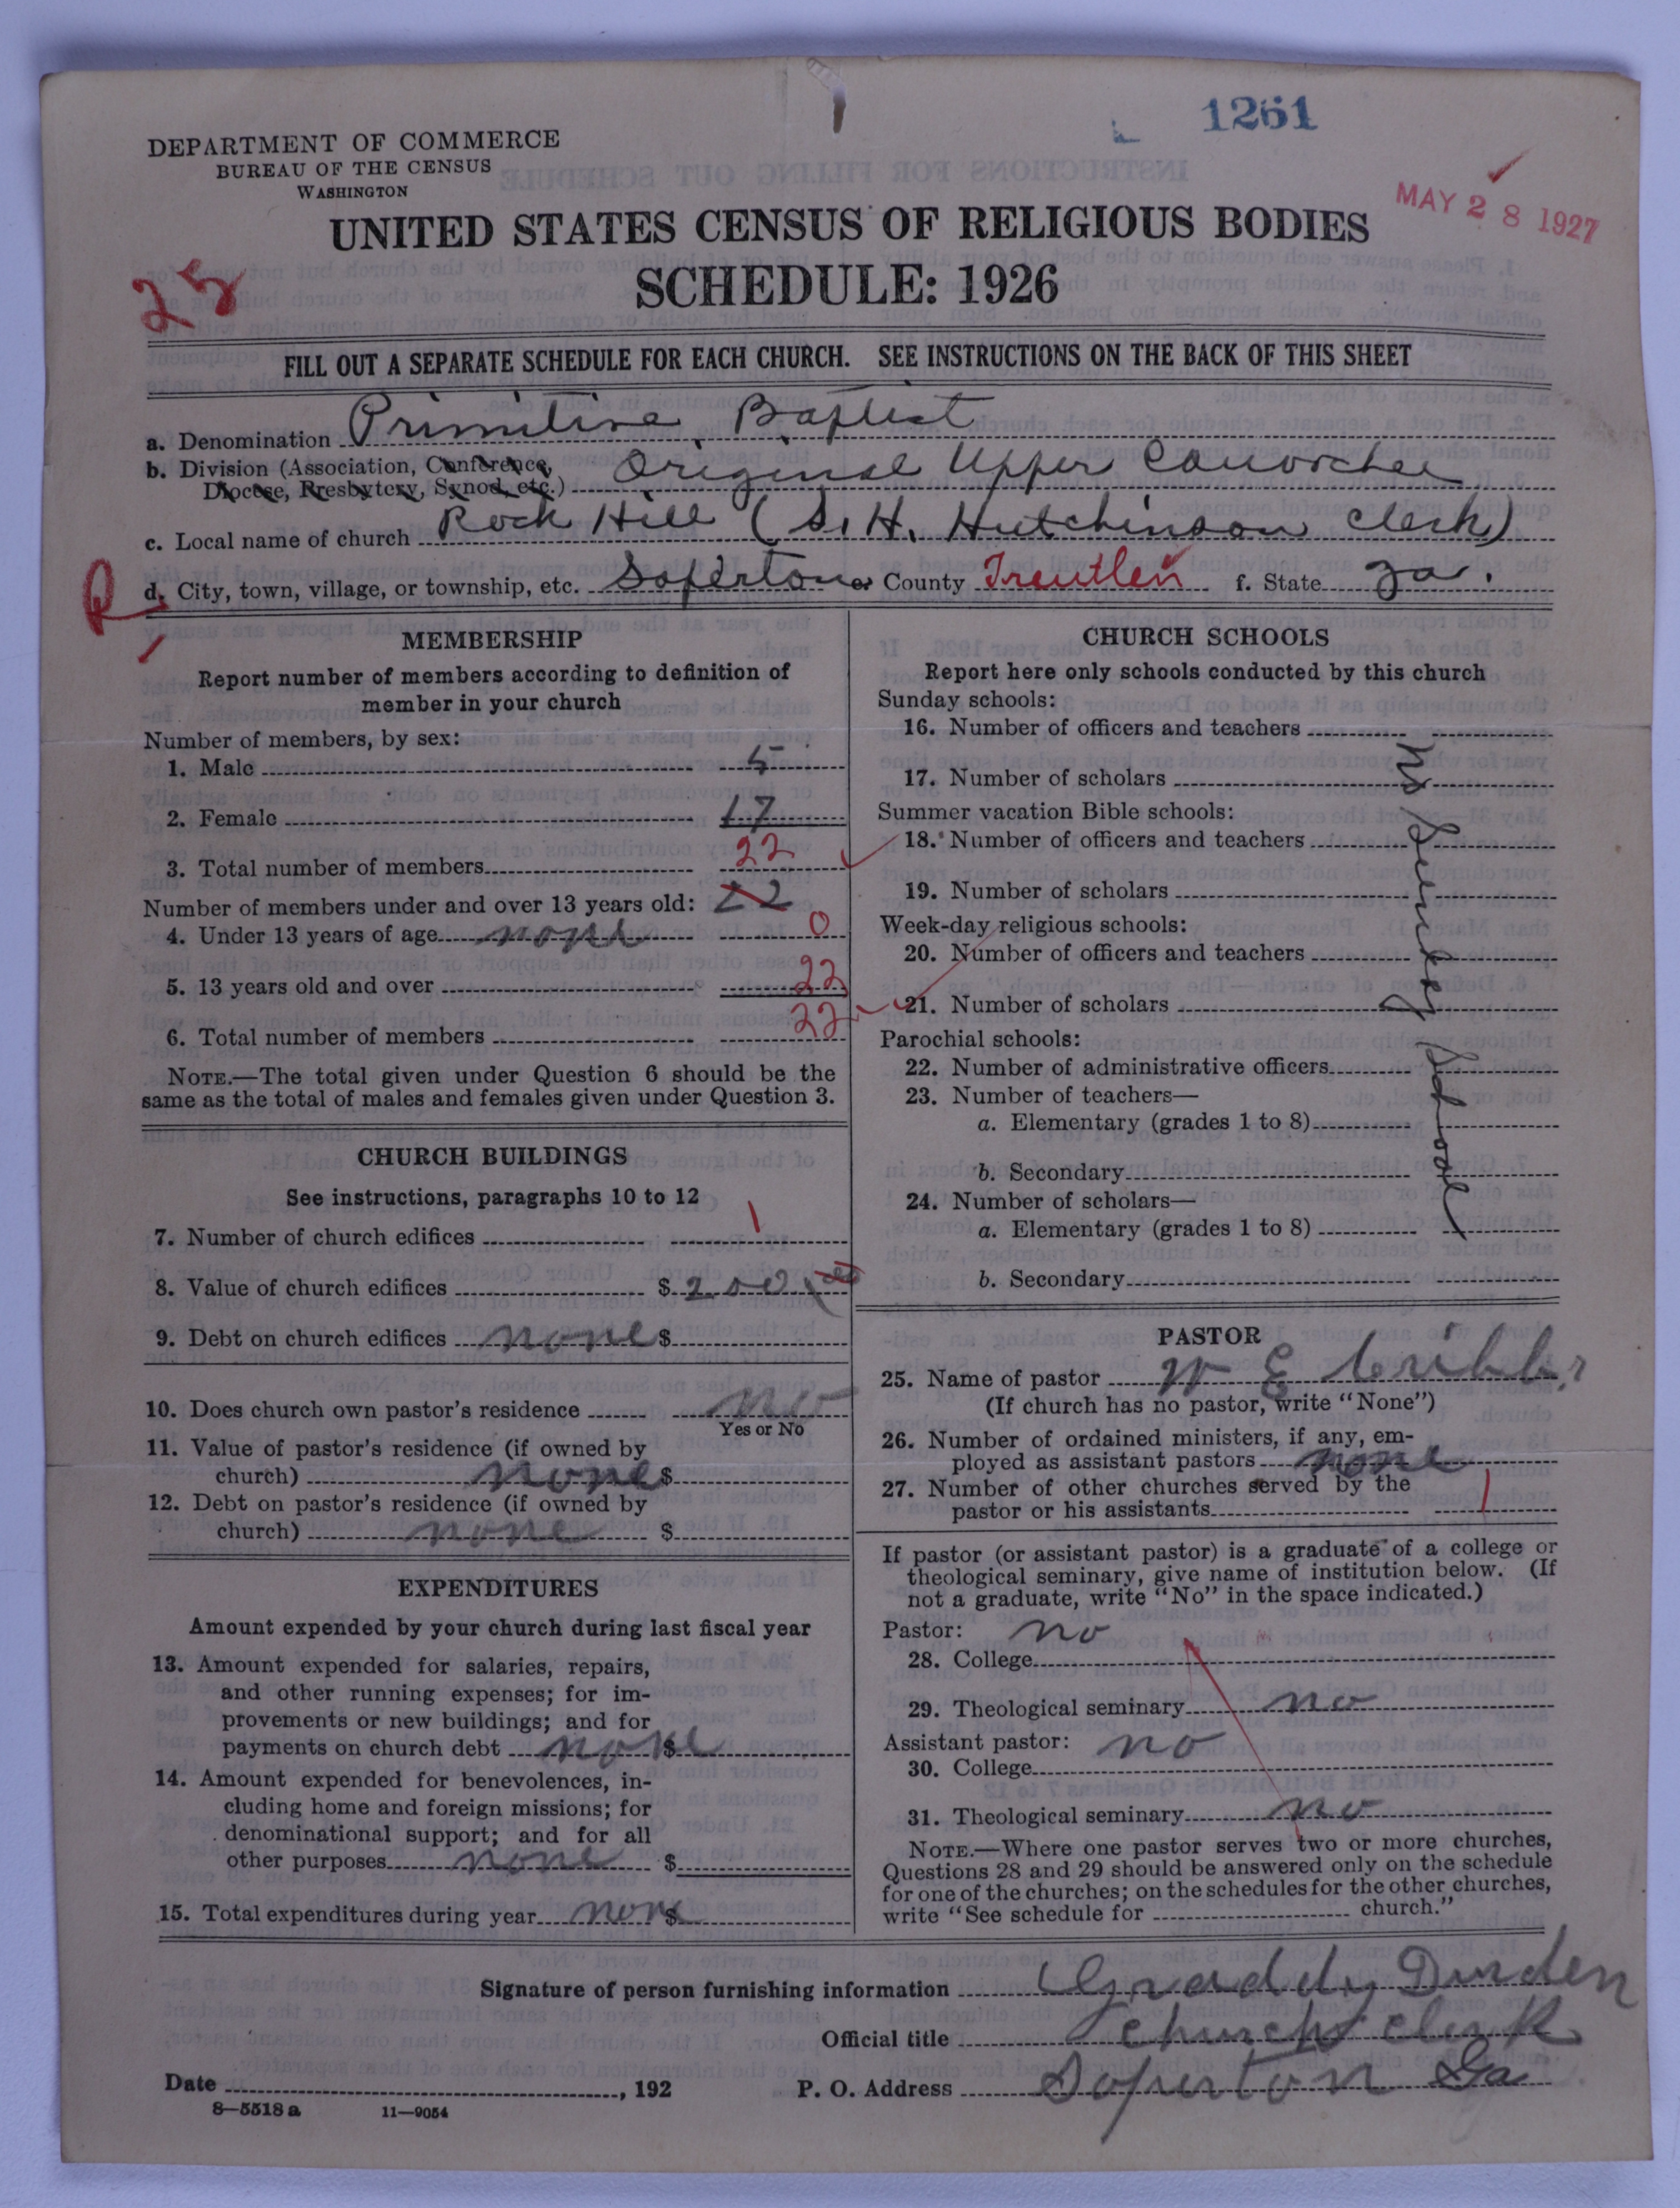 1261
DEPARTMENT OF COMMERCE
BUREAU OF THE CENSUS
WASHINGTON
MAY 28 1927
UNITED STATES CENSUS OF RELIGIOUS BODIES
SCHEDULE: 1926
25
FILL OUT A SEPARATE SCHEDULE FOR EACH CHURCH. SEE INSTRUCTIONS ON THE BACK OF THIS SHEET
a. Denomination Primitive Baptist
b. Division (Association, Conference, Diocese, Presbytery, Synod, etc.) Original Upper Canoochee
c. Local name of church Rock Hill (S. H. Hutchinson Clerk)
R d. City, town, village, or township, etc. Soperton e. County Treutlen f. State Ga.
MEMBERSHIP
Report number of members according to definition of
member in your church
Number of members, by sex:
1. Male 5
2. Female 17
3. Total number of members 22
Number of members under and over 13 years old: 22
4. Under 13 years of age none 0
5. 13 years old and over 22
6. Total number of members 22
NOTE.—The total given under Question 6 should be the
same as the total of males and females given under Question 3.
CHURCH BUILDINGS
See instructions, paragraphs 10 to 12
7. Number of church edifices 1
8. Value of church edifices $ 200 00
9. Debt on church edifices none $
10. Does church own pastor's residence no
Yes or No
11. Value of pastor's residence (if owned by
church) none $
12. Debt on pastor's residence (if owned by
church) none $
EXPENDITURES
Amount expended by your church during last fiscal year
13. Amount expended for salaries, repairs,
and other running expenses; for im-
provements or new buildings; and for
payments on church debt none $
14. Amount expended for benevolences, in-
cluding home and foreign missions; for
denominational support; and for all
other purposes none $
15. Total expenditures during year none $
CHURCH SCHOOLS
Report here only schools conducted by this church
Sunday schools:
16. Number of officers and teachers
17. Number of scholars
Summer vacation Bible schools:
18. Number of officers and teachers
19. Number of scholars
Week-day religious schools:
20. Number of officers and teachers
21. Number of scholars
Parochial schools:
22. Number of administrative officers
23. Number of teachers—
a. Elementary (grades 1 to 8)
b. Secondary
24. Number of scholars—
a. Elementary (grades 1 to 8)
b. Secondary
no Sunday School
PASTOR
25. Name of pastor W E Cribbs
(If church has no pastor, write "None")
26. Number of ordained ministers, if any, em-
ployed as assistant pastors none
27. Number of other churches served by the
pastor or his assistants 1
If pastor (or assistant pastor) is a graduate of a college or
theological seminary, give name of institution below. (If
not a graduate, write "No" in the space indicated.)
Pastor: no
28. College
29. Theological seminary no
Assistant pastor: no
30. College
31. Theological seminary no
NOTE.—Where one pastor serves two or more churches,
Questions 28 and 29 should be answered only on the schedule
for one of the churches; on the schedules for the other churches,
write "See schedule for church."
Signature of person furnishing information Graddy Durden
Official title Church clerk
Date , 192 P. O. Address Soperton Ga
8—5518 a 11—9054